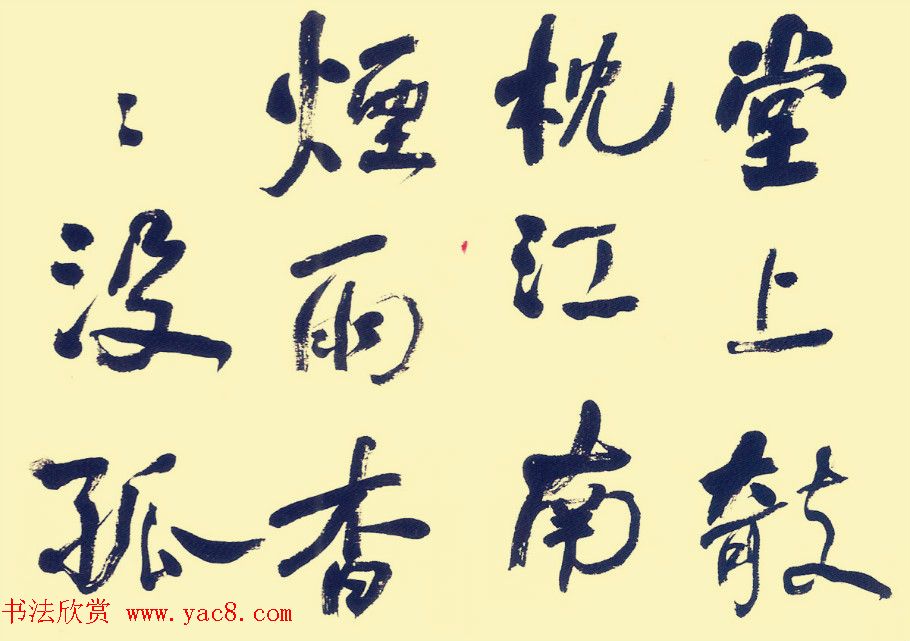 堂上攲
枕江南
煙雨杳
〻没孤
书法欣赏 www.yac8.com